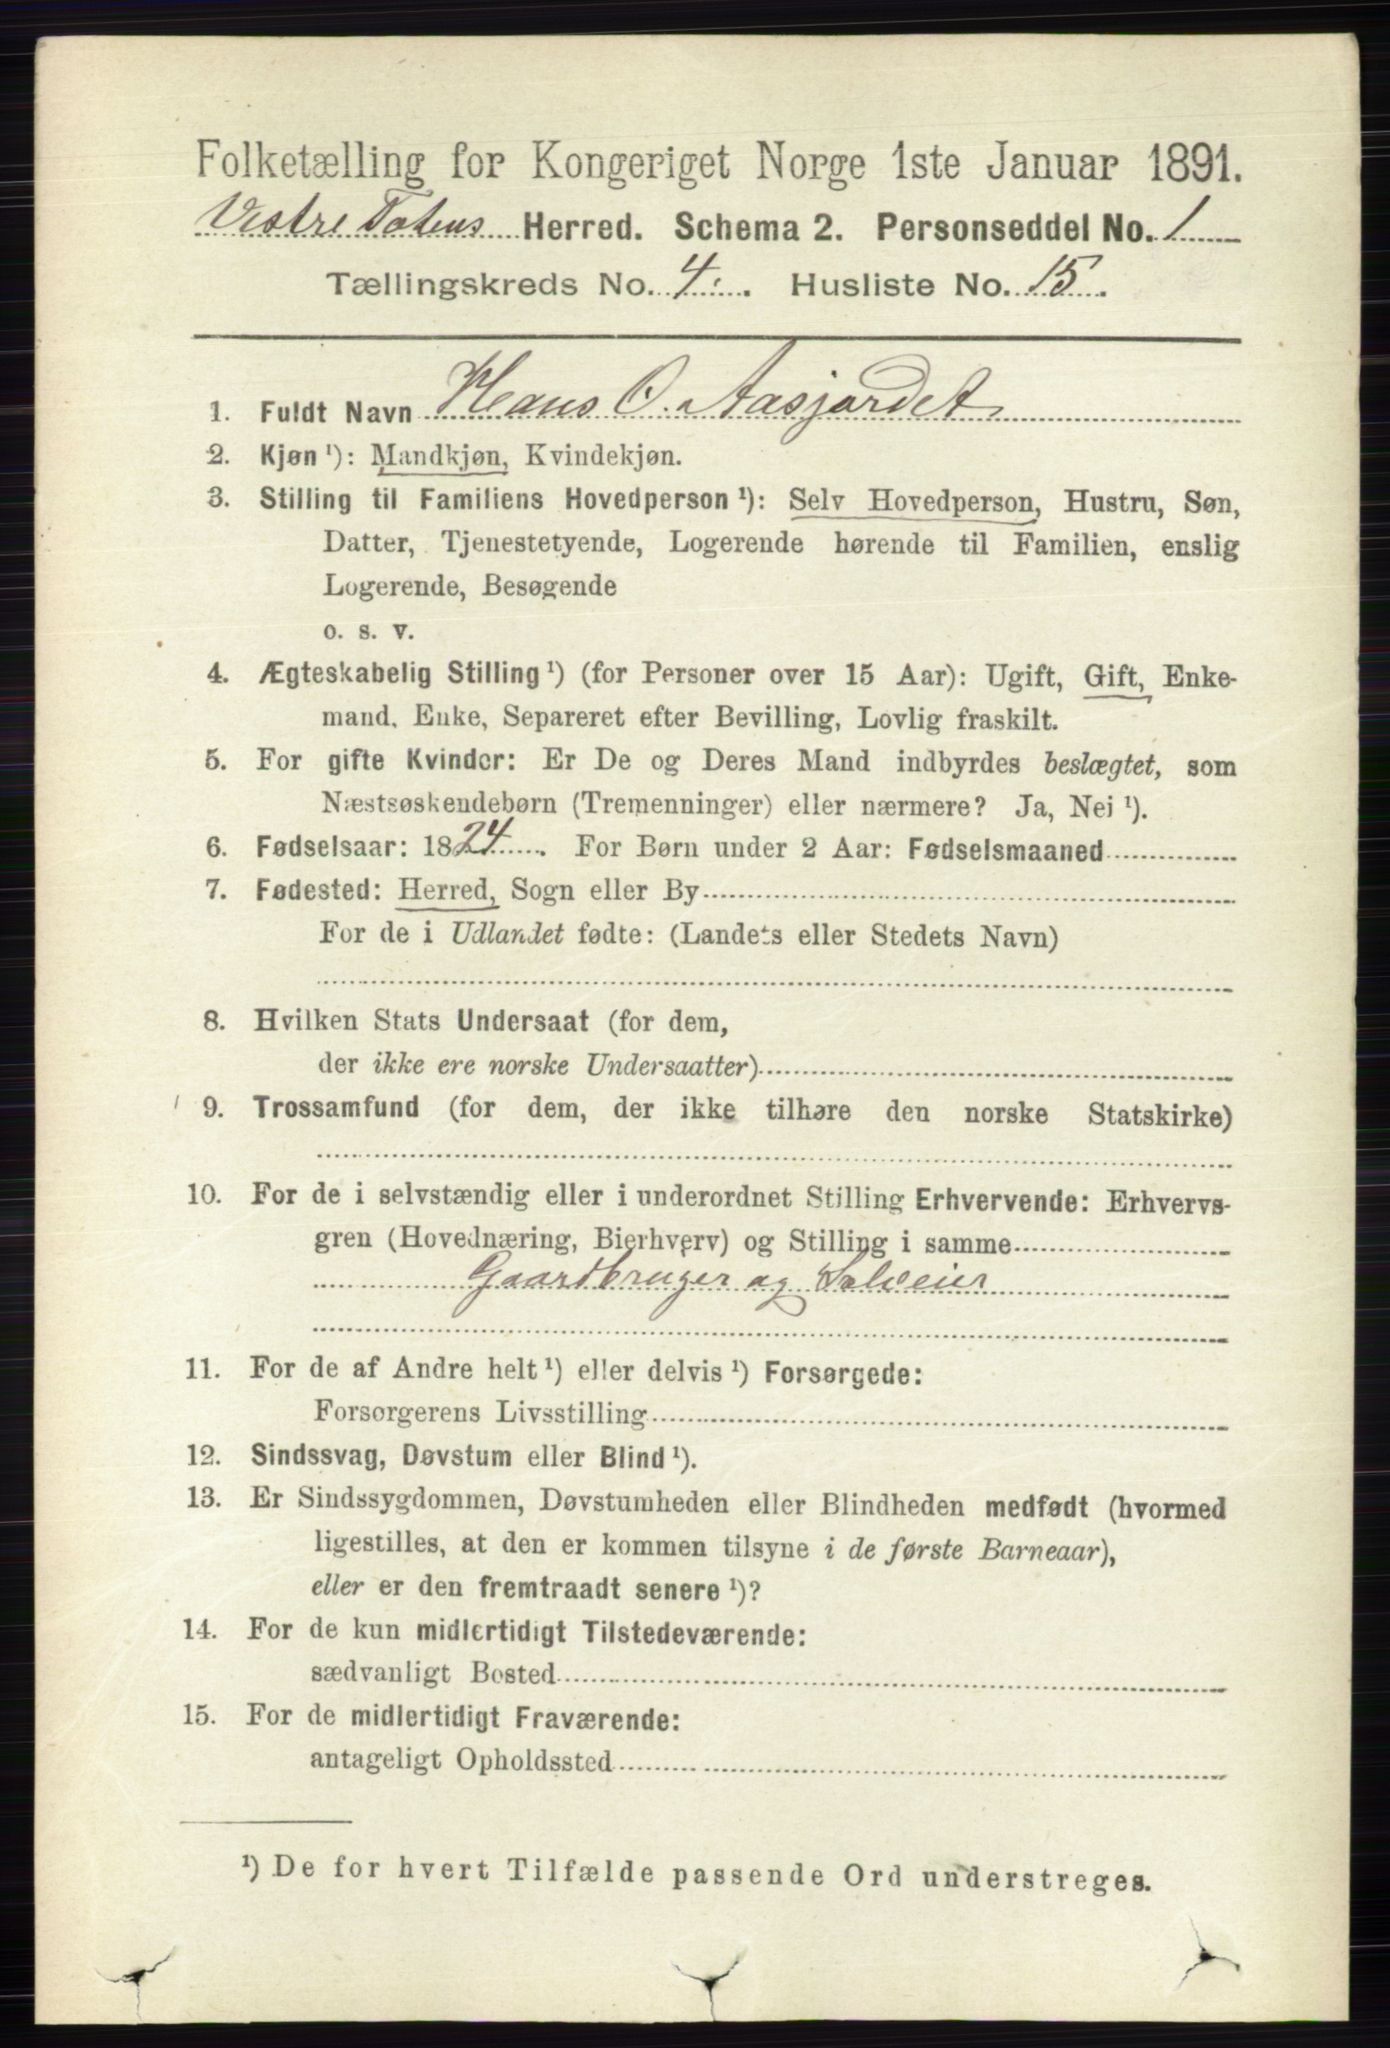 Folketælling for Kongeriget Norge 1ste Januar 1891.
Vestre Totens Herred. Schema 2. Personseddel No. 1
Tællingskreds No. 4. Husliste No. 15.
1. Fuldt Navn Hans O. Aasjordet
2. Kjøn¹): Mandkjøn, Kvindekjøn.
3. Stilling til Familiens Hovedperson¹): Selv Hovedperson, Hustru, Søn,
Datter, Tjenestetyende, Logerende hørende til Familien, enslig
Logerende, Besøgende
o. s. v.
4. Ægteskabelig Stilling¹) (for Personer over 15 Aar): Ugift, Gift, Enke-
mand, Enke, Separeret efter Bevilling, Lovlig fraskilt.
5. For gifte Kvinder: Er De og Deres Mand indbyrdes beslægtet, som
Næstsøskendebørn (Tremenninger) eller nærmere? Ja, Nei¹).
6. Fødselsaar: 1824. For Børn under 2 Aar: Fødselsmaaned
7. Fødested: Herred, Sogn eller By
For de i Udlandet fødte: (Landets eller Stedets Navn)
8. Hvilken Stats Undersaat (for dem,
der ikke ere norske Undersaatter)
9. Trossamfund (for dem, der ikke tilhøre den norske Statskirke)
10. For de i selvstændig eller i underordnet Stilling Erhvervende: Erhvervs-
gren (Hovednæring, Bierhverv) og Stilling i samme
Gaardbruger og Selveier
11. For de af Andre helt¹) eller delvis¹) Forsørgede:
Forsørgerens Livsstilling
12. Sindssvag, Døvstum eller Blind¹).
13. Er Sindssygdommen, Døvstumheden eller Blindheden medfødt (hvormed
ligestilles, at den er kommen tilsyne i de første Barneaar),
eller er den fremtraadt senere¹)?
14. For de kun midlertidigt Tilstedeværende:
sædvanligt Bosted
15. For de midlertidigt Fraværende:
antageligt Opholdssted
¹) De for hvert Tilfælde passende Ord understreges.